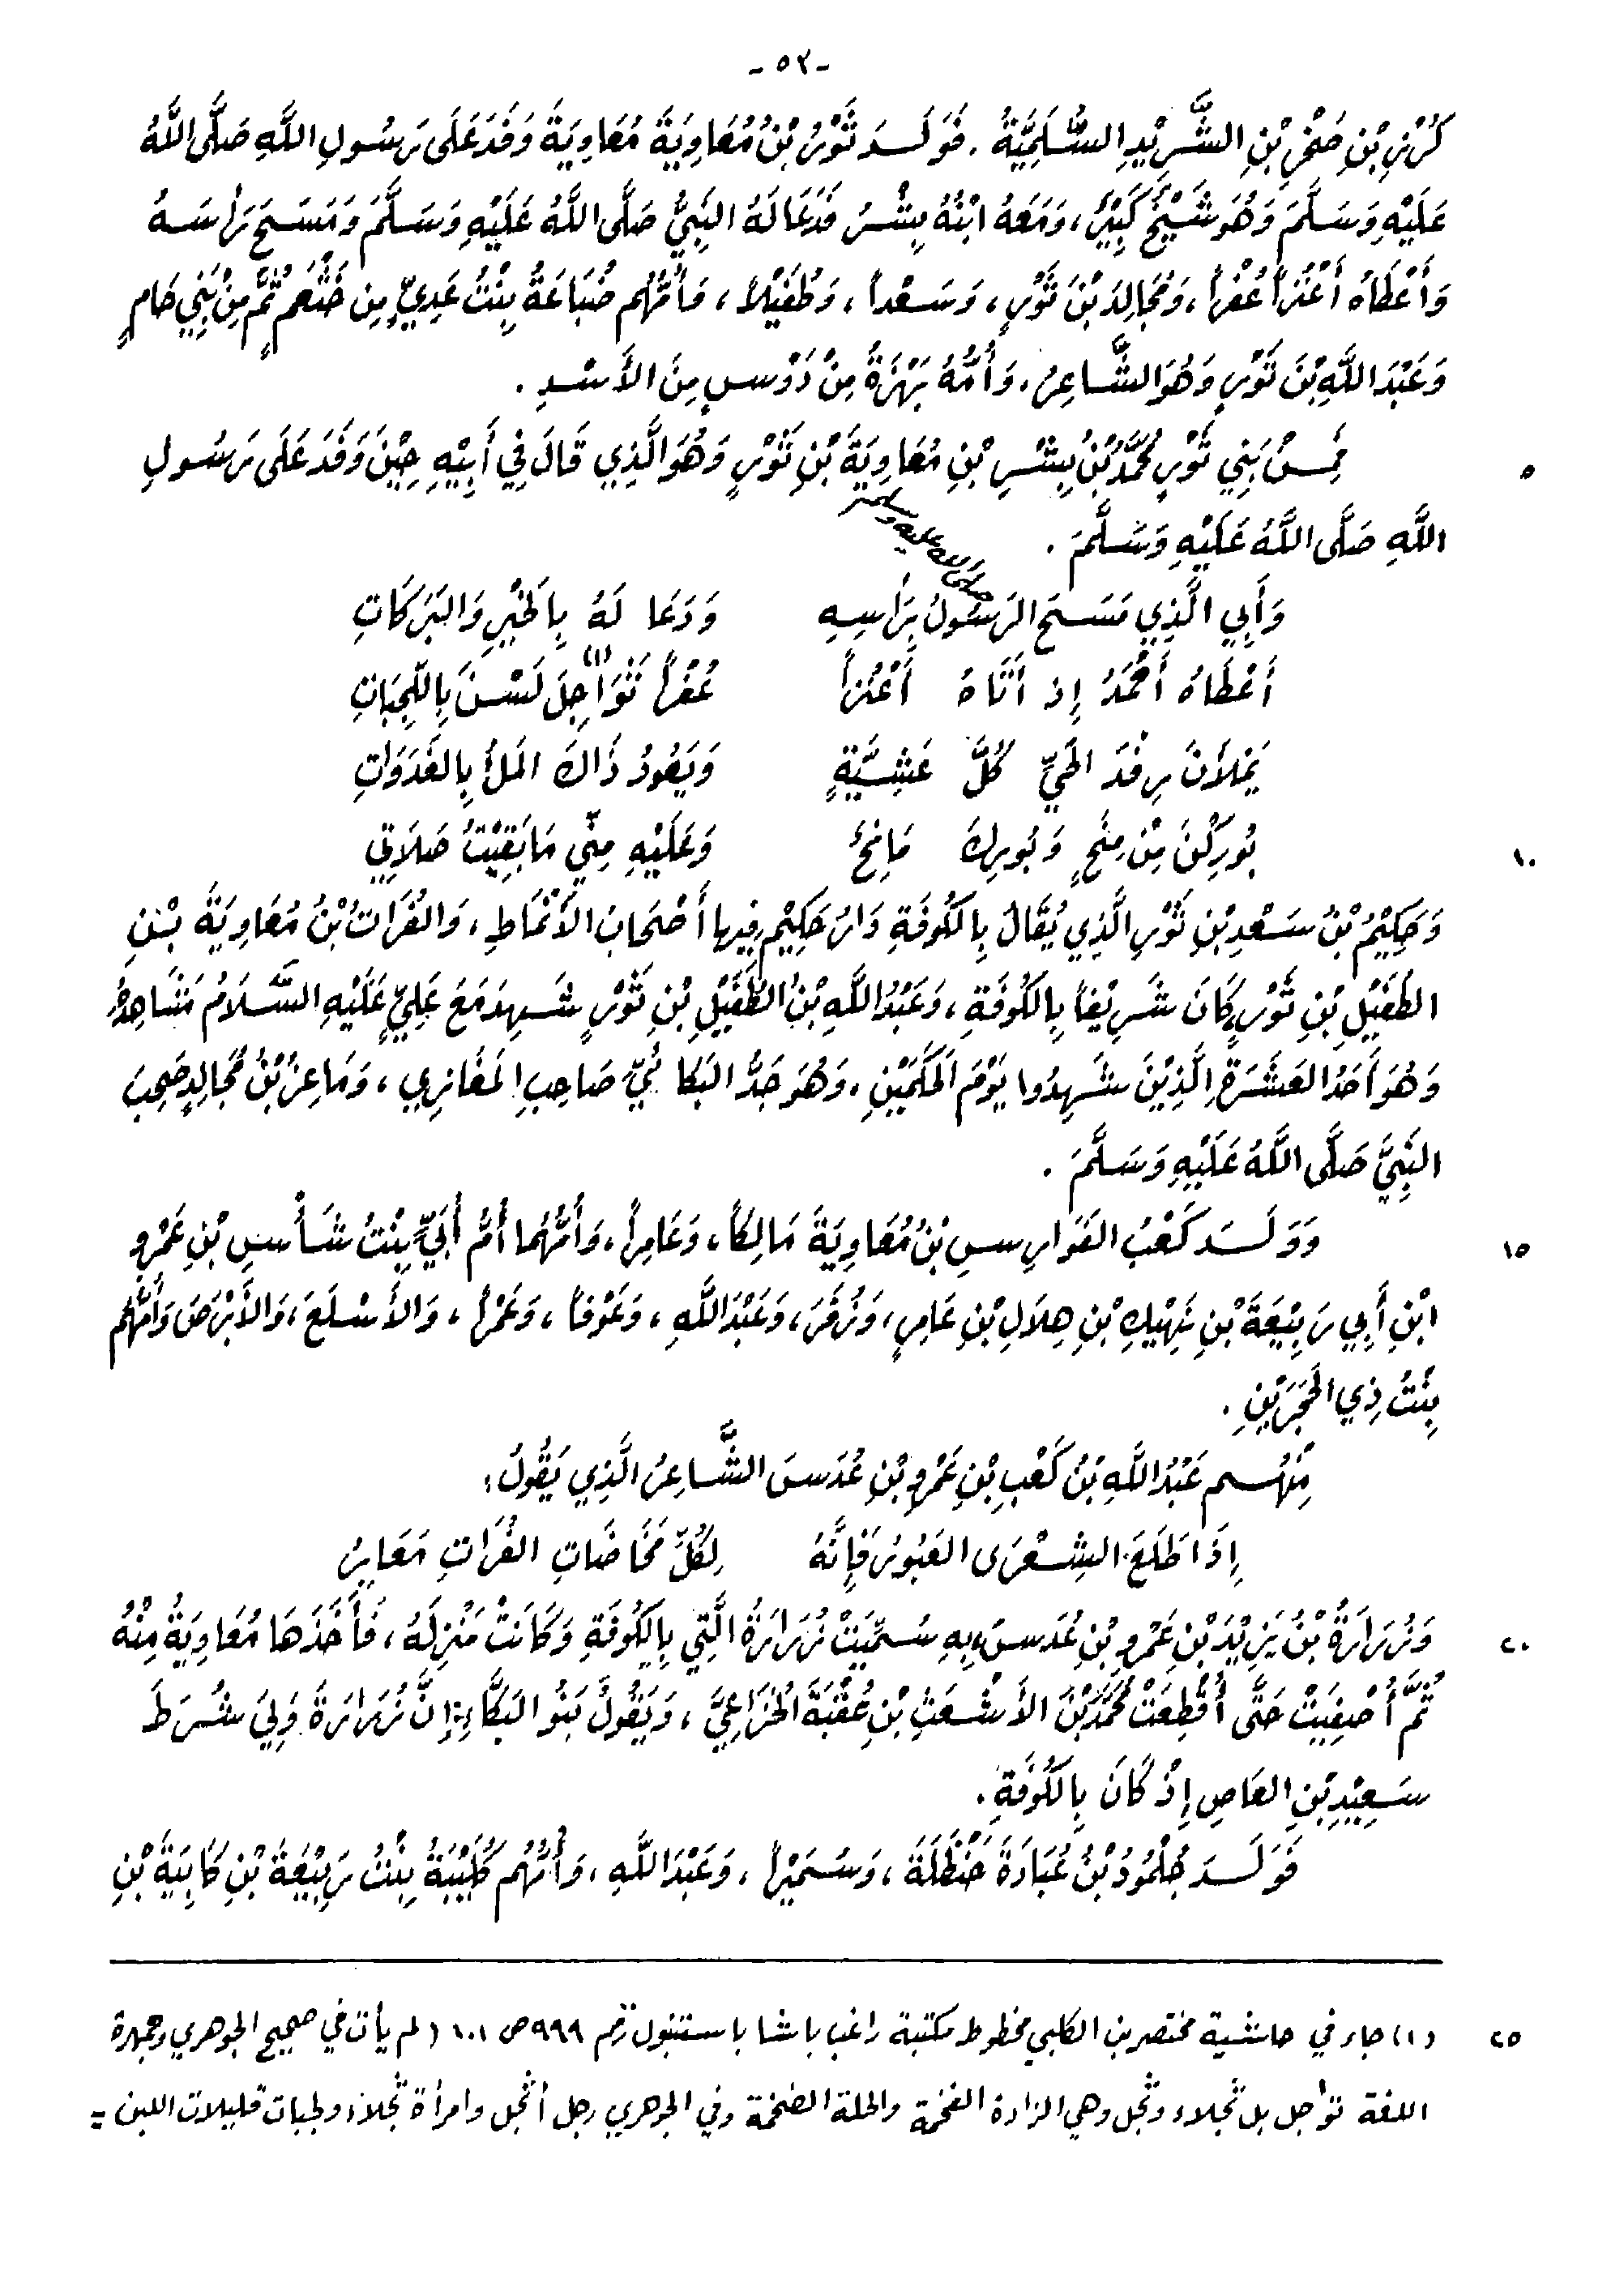 -٥٢-
كُرْزِ بْنِ صَخْرِ بْنِ الشَّرِيْدِ السُّلَمِيَّةُ. فَوَلَدَ ثَوْرُ بْنُ مُعَاوِيَةَ مُعَاوِيَةَ وَفَدَ عَلَى رَسُولِ اللَّهِ صَلَّى اللَّهُ
عَلَيْهِ وَسَلَّمَ وَهُوَ شَيْخٌ كَبِيْرٌ، وَمَعَهُ ابْنُهُ بِشْرُ فَدَعَا لَهُ النَّبِيُّ صَلَّى اللَّهُ عَلَيْهِ وَسَلَّمَ وَمَسَحَ رَأْسَهُ
وَأَعْطَاهُ أَعْنُزاً عُفْراً، وَمُجَالِدَ بْنَ ثَوْرٍ، وَسَعْداً، وَطُفَيْلاً، وَأُمُّهُم ضُبَاعَةُ بِنْتُ عَدِيٍّ مِن خَثْعَمٍ ثُمَّ مِنْ بَنِي حَامٍ
وَعَبْدَ اللَّهِ بْنَ ثَوْرٍ وَهُوَ الشَّاعِرُ. وَأُمُّهُ بَهْزَةُ مِنْ دَوْسٍ مِنَ الأَسْدِ.
٥ فَمِنْ بَنِي ثَوْرٍ مُحَمَّدُ بْنُ بِشْرِ بْنِ مُعَاوِيَةَ بْنِ ثَوْرٍ وَهُوَ الَّذِي قَالَ فِي أَبِيْهِ حِيْنَ وَفَدَ عَلَى رَسُولِ
اللَّهِ صَلَّى اللَّهُ عَلَيْهِ وَسَلَّمَ.
صلى الله عليه وسلم
وَأَبِي الَّذِي مَسَحَ الرَسُولُ بِرَأْسِهِ وَدَعَا لَهُ بِالخَيْرِ وَالبَرَكَاتِ
أَعْطَاهُ أَحْمَدُ إِذ أَتَاهُ أَعْنُزاً عُفْراً ثَوَاجِلَ (١) لَسْنَ بِاللَّجِبَاتِ
يَمْلأنَ رِفْدَ الحَيِّ كُلَّ عَشِيَّةٍ وَيَعُودُ ذَاكَ المَلءُ بِالغَدَوَاتِ
١٠ بُورِكْنَ مِنْ مِنَحٍ وَبُورِكَ مَانِحٌ وَعَلَيْهِ مِنِّي مَا بَقِيْتُ صَلَاتِي
وَحَكِيْمُ بْنُ سَعْدِ بْنِ ثَوْرٍ الَّذِي يُقَالُ بِالكُوفَةِ دَارُ حَكِيْمٍ فِيها أَصْحَابُ الأَنْمَاطِ، وَالفُرَاتُ بْنُ مُعَاوِيَةَ بْنِ
الطُفَيْلِ بْنِ ثَوْرٍ كَانَ شَرِيْفاً بِالكُوفَةِ، وَعَبْدُ اللَّهِ بْنُ الطُفَيْلِ بْنِ ثَوْرٍ شَهِدَ مَعَ عَلِيٍّ عَلَيْهِ السَّلَامُ مَشَاهِدَهُ
وَهُوَ أَحَدُ العَشَرَةِ الَّذِيْنَ شَهِدُوا يَوْمَ الحَكَمَيْنِ. وَهُوَ جَدُّ البَكَّائِيِّ صَاحِبِ المَغَازِي، وَمَاعِزُ بْنُ مُجَالِدٍ صَحِبَ
النَّبِيَّ صَلَّى اللَّهُ عَلَيْهِ وَسَلَّمَ.
١٥ وَوَلَدَ كَعْبُ الفَوَارِسِ بْنُ مُعَاوِيَةَ مَالِكاً، وَعَامِراً، وَأُمُّهُما أُمُّ أُبَيٍّ بِنْتُ شَأْسِ بْنِ عَمْرِو
ابْنِ أَبِي رَبِيْعَةَ بْنِ نَهِيْكِ بْنِ هِلَالِ بْنِ عَامِرٍ، وَزُفَرَ، وَعَبْدَ اللَّهِ، وَعَوْفاً، وَعَمْراً، وَالأَسْلَعَ، وَالأَبْرَصَ وَأُمُّهُم
بِنْتُ ذِي الحَجَرَيْنِ.
مِنْهُم عَبْدُ اللَّهِ بْنُ كَعْبِ بْنِ عَمْرِو بْنِ عُدَسَ الشَّاعِرُ الَّذِي يَقُولُ:
إِذَا طَلَعَ الشِعْرَى العَبُورُ فَإِنَّهُ لِكُلِّ مَخَاضَاتِ الفُرَاتِ مَعَابِرُ
٢٠ وَزُرَارَةُ بْنُ يَزِيْدَ بْنِ عَمْرِو بْنِ عُدَسَ، بِهِ سُمِّيَتْ زُرَارَةُ الَّتِي بِالكُوفَةِ وَكَانَتْ مَنْزِلَهُ، فَأَخَذَهَا مُعَاوِيَةُ مِنْهُ
ثُمَّ أُصْفِيَتْ حَتَّى أُقْطِعَتْ مُحَمَّدَ بْنَ الأَشْعَثِ بْنِ عُقْبَةَ الخُزَاعِيَّ، وَيَقُولُ بَنُو البَكَّاءِ: إِنَّ زُرَارَةَ وَلِيَ شُرَطَ
سَعِيْدِ بْنِ العَاصِ إِذْ كَانَ بِالكُوفَةِ.
فَوَلَدَ جُلْمُودُ بْنُ عُبَادَةَ حَنْظَلَةَ، وَسُمَيْراً، وَعَبْدَ اللَّهِ، وَأُمُّهُم كُلَيْبَةُ بِنْتُ رَبِيْعَةَ بْنِ كَابِيَةَ بْنِ
٢٥ (١) جاء في حاشية مختصر بن الكلبي مخطوط مكتبة راغب باشا باستنبول رقم ٩٩٩ ص ١٠١ (لم يأت في صحيح الجوهري وجمهرة
اللغة ثواجل بل ثجلاء وثجل وهي المزادة الفخمة والحلة الضخمة وفي الجوهري رجل أثجل وامرأة ثجلاء ولجبات قليلات اللبن =